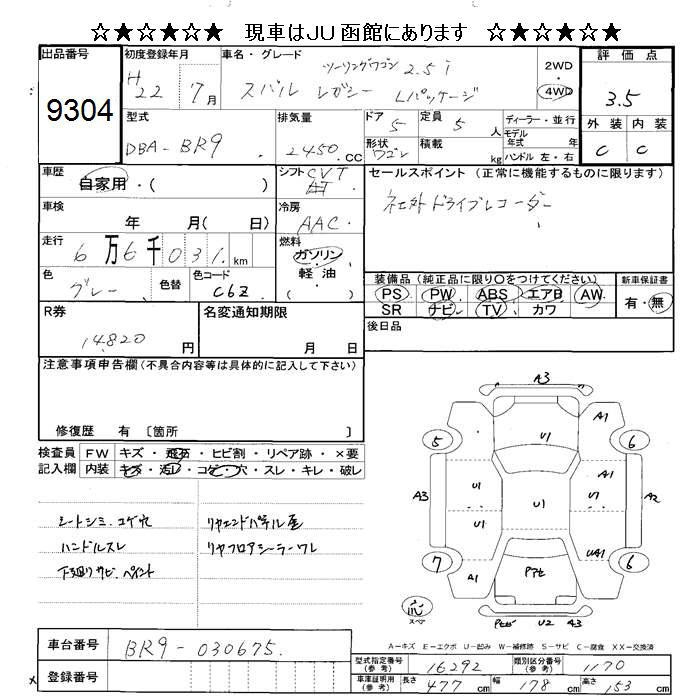 ☆★☆★☆ 現車はJU函館にあります ☆★☆★☆
出品番号
9304
初度登録年月
H22 7月
車名・グレード
ツーリングワゴン 2.5i
スバル レガシー Lパッケージ
2WD
4WD
評価点
3.5
外装 内装
C C
型式
DBA-BR9
排気量
2450 CC
ドア 5
定員 5 人
形状 ワゴン
積載 kg
ディーラー・並行
モデル年式 年
ハンドル 左・右
車歴
自家用・( )
シフト CVT
AT
セールスポイント (正常に機能するものに限ります)
社外ドライブレコーダー
車検
年 月( 日)
冷房
AAC
走行
6万6千031km
燃料
ガソリン
軽油
( )
色
グレー
色替
色コード
C6Z
装備品 (純正品に限り○をつけてください)
PS PW ABS エアB AW
SR ナビ TV カワ
新車保証書
有・無
R券
14820 円
名変通知期限
月 日
後日品
注意事項申告欄 (不具合内容等は具体的に記入して下さい)
修復歴 有 〔箇所 〕
検査員記入欄
FW キズ・飛石・ヒビ割・リペア跡・×要
内装 キズ・汚レ・コゲ・穴・スレ・キレ・破レ
シートシミ、コゲ穴
ハンドルスレ
下廻りサビ、ペイント
リヤエンドパネル歪
リヤフロアシーラーワレ
A3
A1
5
U1
6
A1
A3
U1
U1
U1
A2
U1
UA1
7
A1
6
スペア
U2 A3
A-キズ E-エクボ U-凹み W-補修跡 S-サビ C-腐食 XX-交換済
車台番号
BR9-030675
登録番号
型式指定番号(参考)
16292
類別区分番号(参考)
1170
車庫証明用(参考)
長さ 477 cm
幅 178 cm
高さ 153 cm